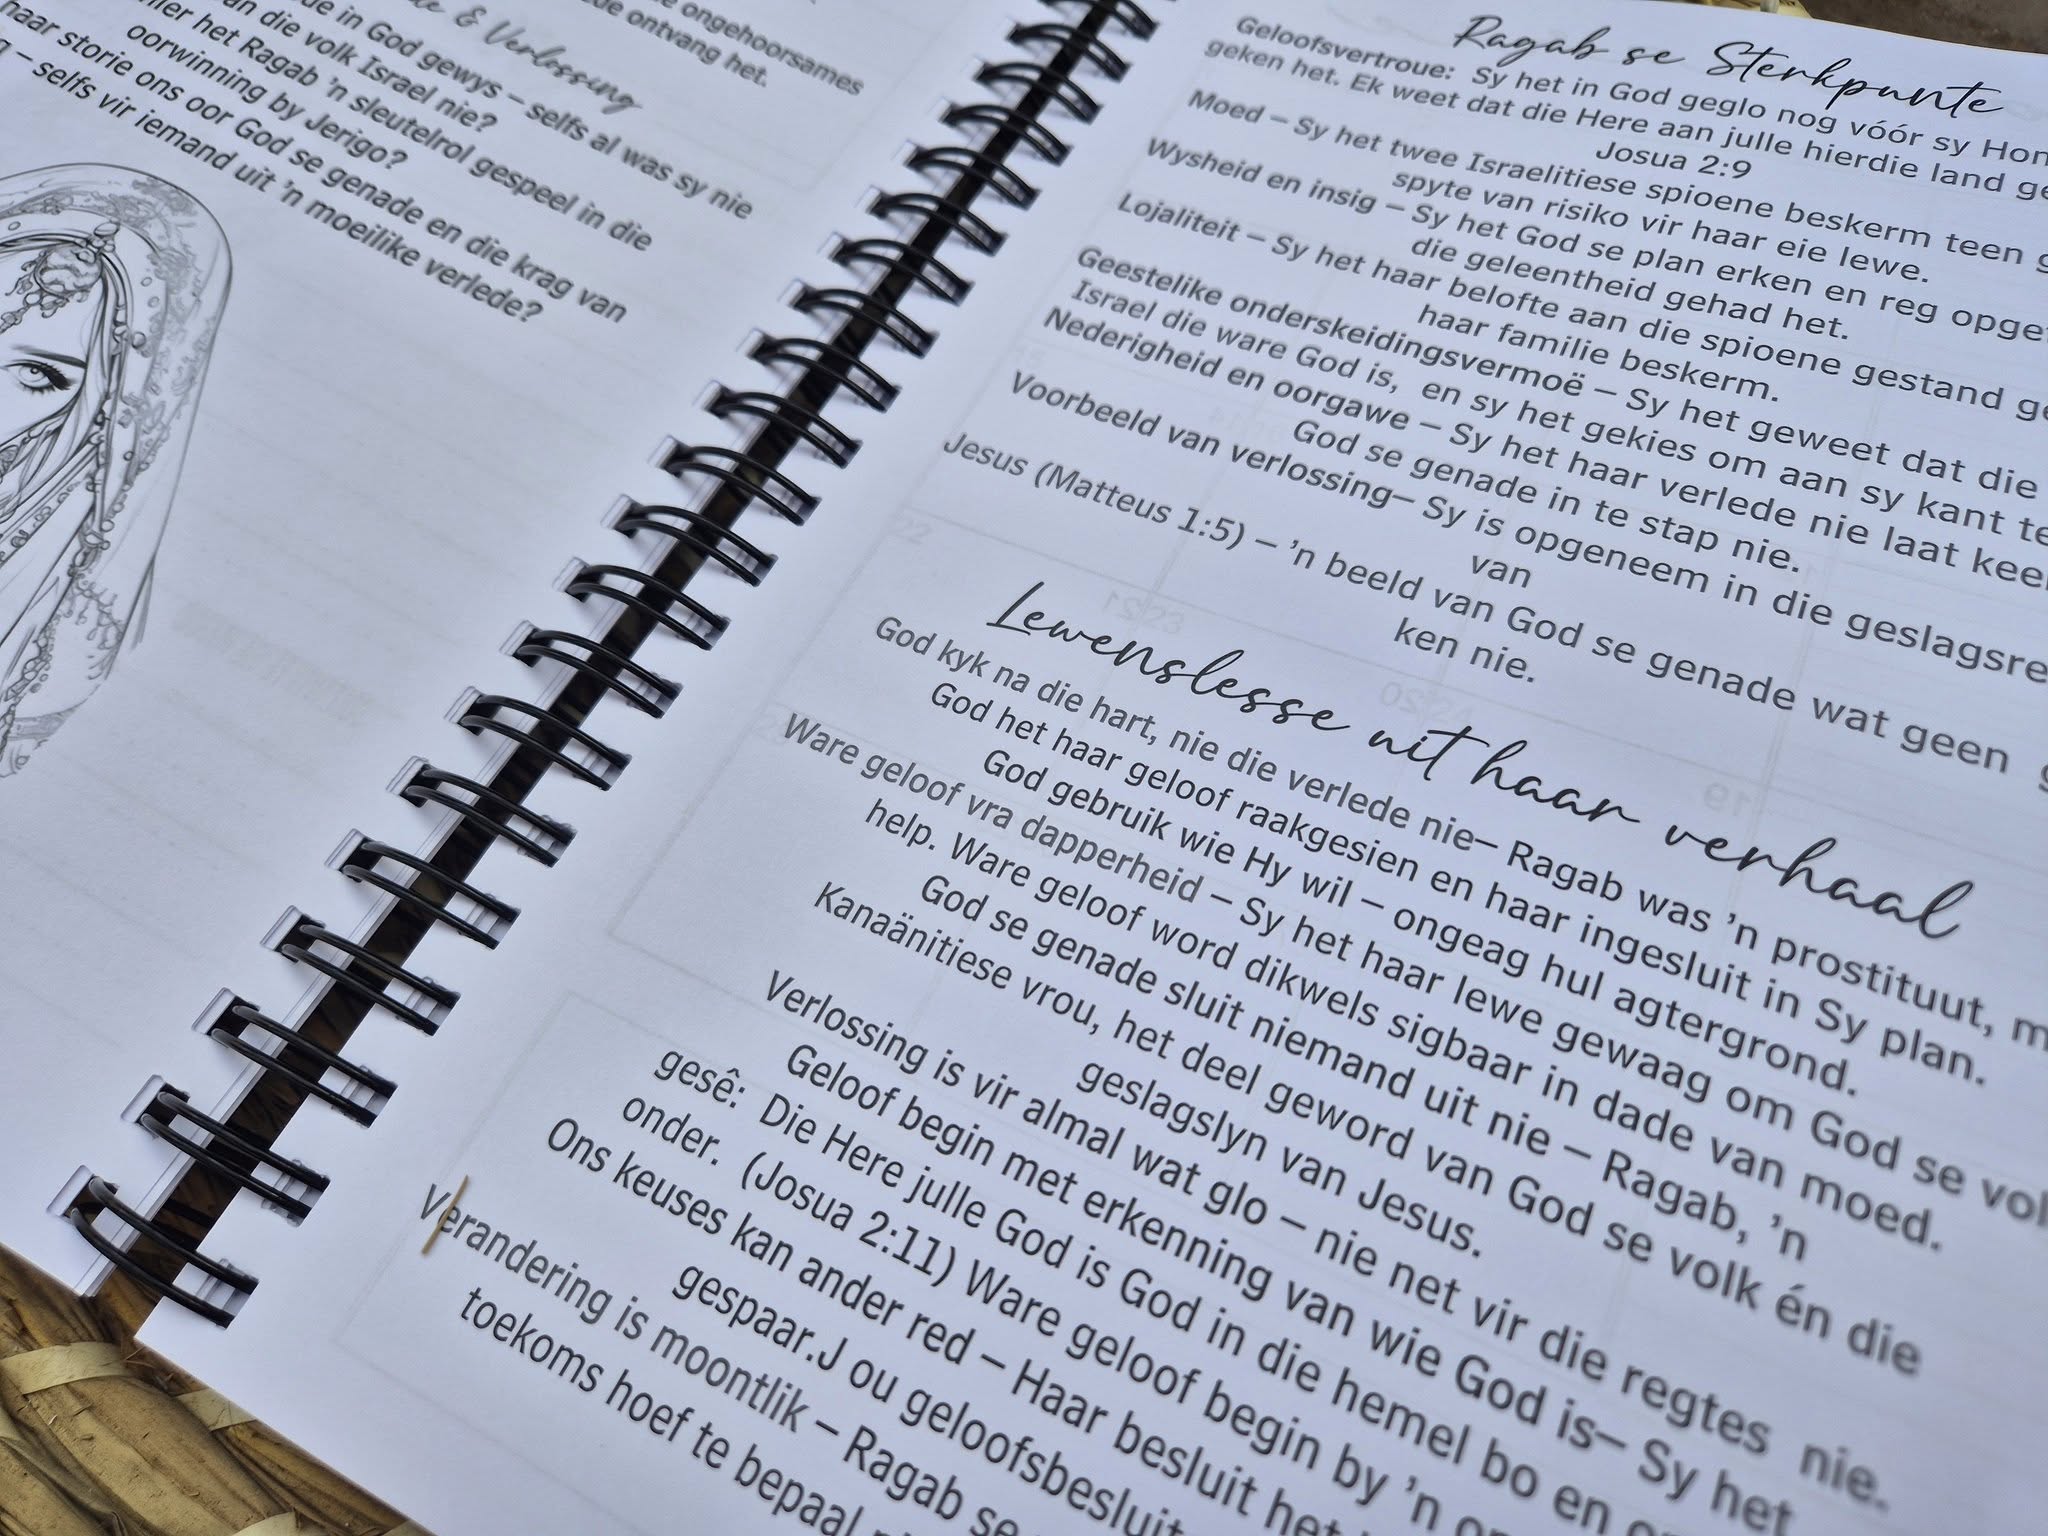 ongehoorsames
ontvang het.
& Verlossing
in God gewys – selfs al was sy nie
die volk Israel nie?
het Ragab 'n sleutelrol gespeel in die
oorwinning by Jerigo?
haar storie ons oor God se genade en die krag van
– selfs vir iemand uit 'n moeilike verlede?
Ragab se Sterkpunte
Geloofsvertroue: Sy het in God geglo nog vóór sy
geken het. Ek weet dat die Here aan julle hierdie land
Josua 2:9
Moed – Sy het twee Israelitiese spioene beskerm teen
spyte van risiko vir haar eie lewe.
Wysheid en insig – Sy het God se plan erken en reg
die geleentheid gehad het.
Lojaliteit – Sy het haar belofte aan die spioene gestand
haar familie beskerm.
Geestelike onderskeidingsvermoë – Sy het geweet dat die
Israel die ware God is, en sy het gekies om aan sy kant
Nederigheid en oorgawe – Sy het haar verlede nie laat
God se genade in te stap nie.
Voorbeeld van verlossing– Sy is opgeneem in die
van
Jesus (Matteus 1:5) – 'n beeld van God se genade wat geen
ken nie.
Lewenslesse uit haar verhaal
God kyk na die hart, nie die verlede nie– Ragab was 'n prostituut,
God het haar geloof raakgesien en haar ingesluit in Sy plan.
God gebruik wie Hy wil – ongeag hul agtergrond.
Ware geloof vra dapperheid – Sy het haar lewe gewaag om God se
help. Ware geloof word dikwels sigbaar in dade van moed.
God se genade sluit niemand uit nie – Ragab, 'n
Kanaänitiese vrou, het deel geword van God se volk én die
geslagslyn van Jesus.
Verlossing is vir almal wat glo – nie net vir die regtes nie.
Geloof begin met erkenning van wie God is– Sy het
gesê: Die Here julle God is God in die hemel bo en
onder. (Josua 2:11) Ware geloof begin by 'n
Ons keuses kan ander red – Haar besluit het
gespaar.J ou geloofsbesluit
Verandering is moontlik – Ragab se
toekoms hoef te bepaal